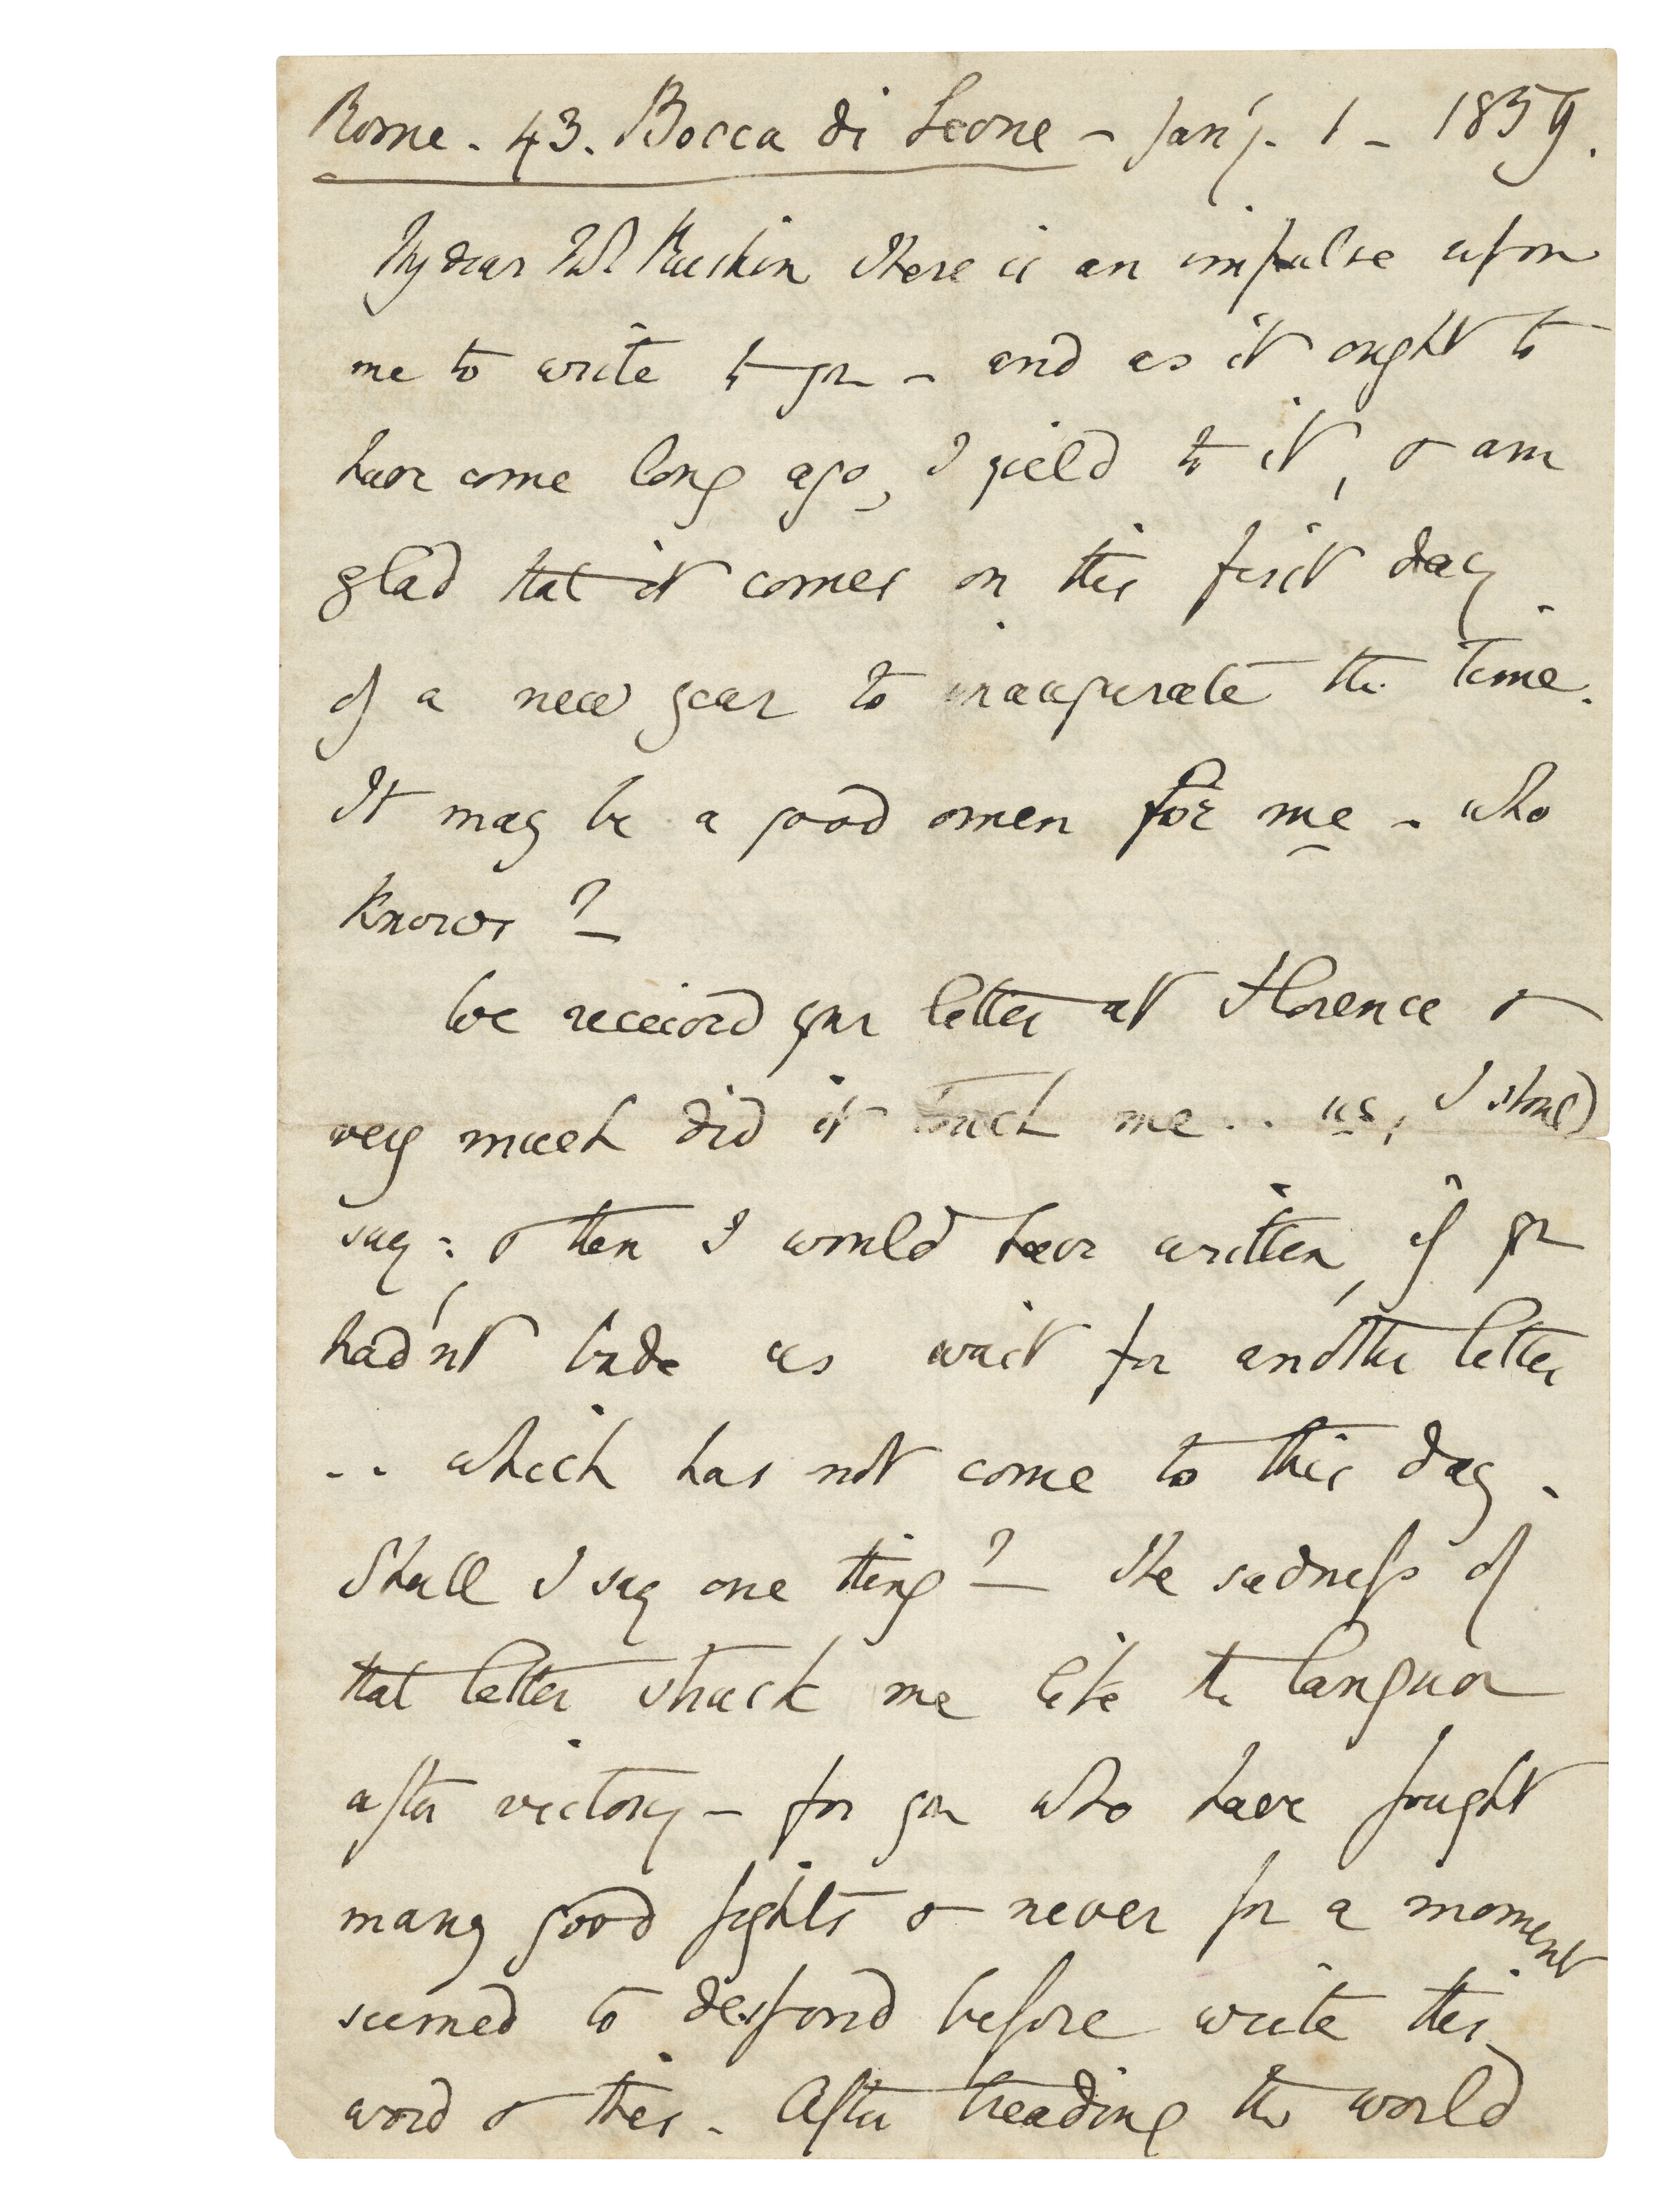 Rome - 43. Bocca di Leone - Jan'y. 1 - 1859.
My dear Mr. Ruskin There is an impulse upon
me to write to you - and as it ought to
have come long ago, I yield to it, & am
glad that it comes on this first day
of a new year to inaugurate the time.
It may be a good omen for me - who
knows?
We received your letter at Florence &
very much did it touch me .. us, I should
say: & then I would have written, if you
hadn't bade us wait for another letter
.. which has not come to this day.
Shall I say one thing? The sadness of
that letter struck me like the languor
after victory - for you who have fought
many good fights & never for a moment
seemed to despond before write this
word & this. After treading the world